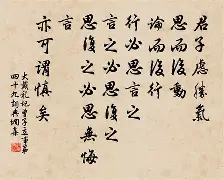 君子慮勝氣
思而後動
論而後行
行必思言之
言之必思復之
思復之必思無悔
言
亦可謂慎矣
大戴禮記曾子立事第
四十九詞典網集